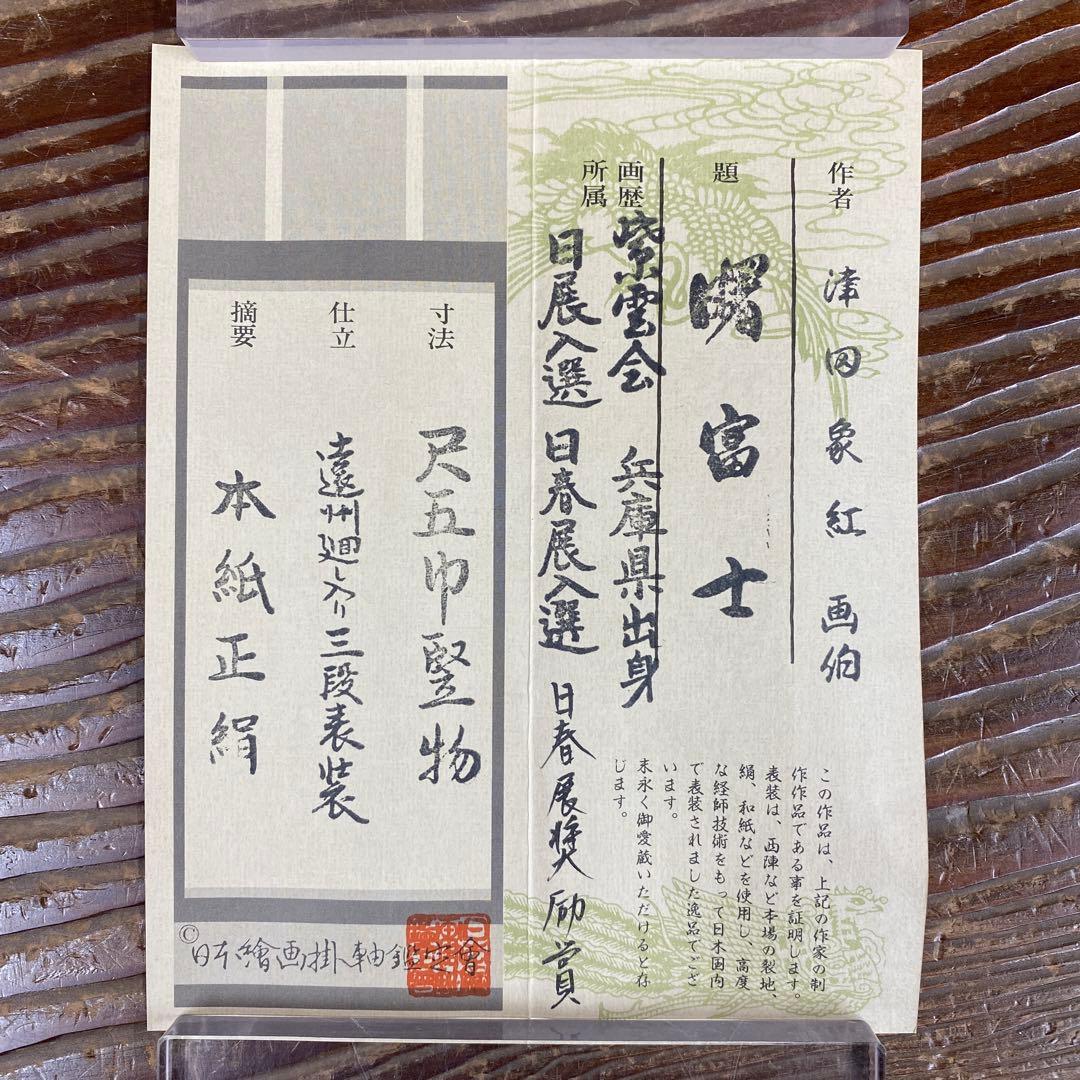 作者 津田象紅画伯
題 富士
画歴 紫雲会 兵庫県出身
所属 日展入選 日春展入選 日春展奨励賞
この作品は、上記の作家の制
作作品である事を証明します。
表装は、西陣など本場の裂地、
絹、和紙などを使用し、高度
な経師技術をもって日本国内
で表装されました逸品でござ
います。
末永く御愛蔵いただけると存
じます。
寸法 尺五巾竪物
仕立 遠州廻し入り三段表装
摘要 本紙正絹
©日本繪画掛軸鑑定會